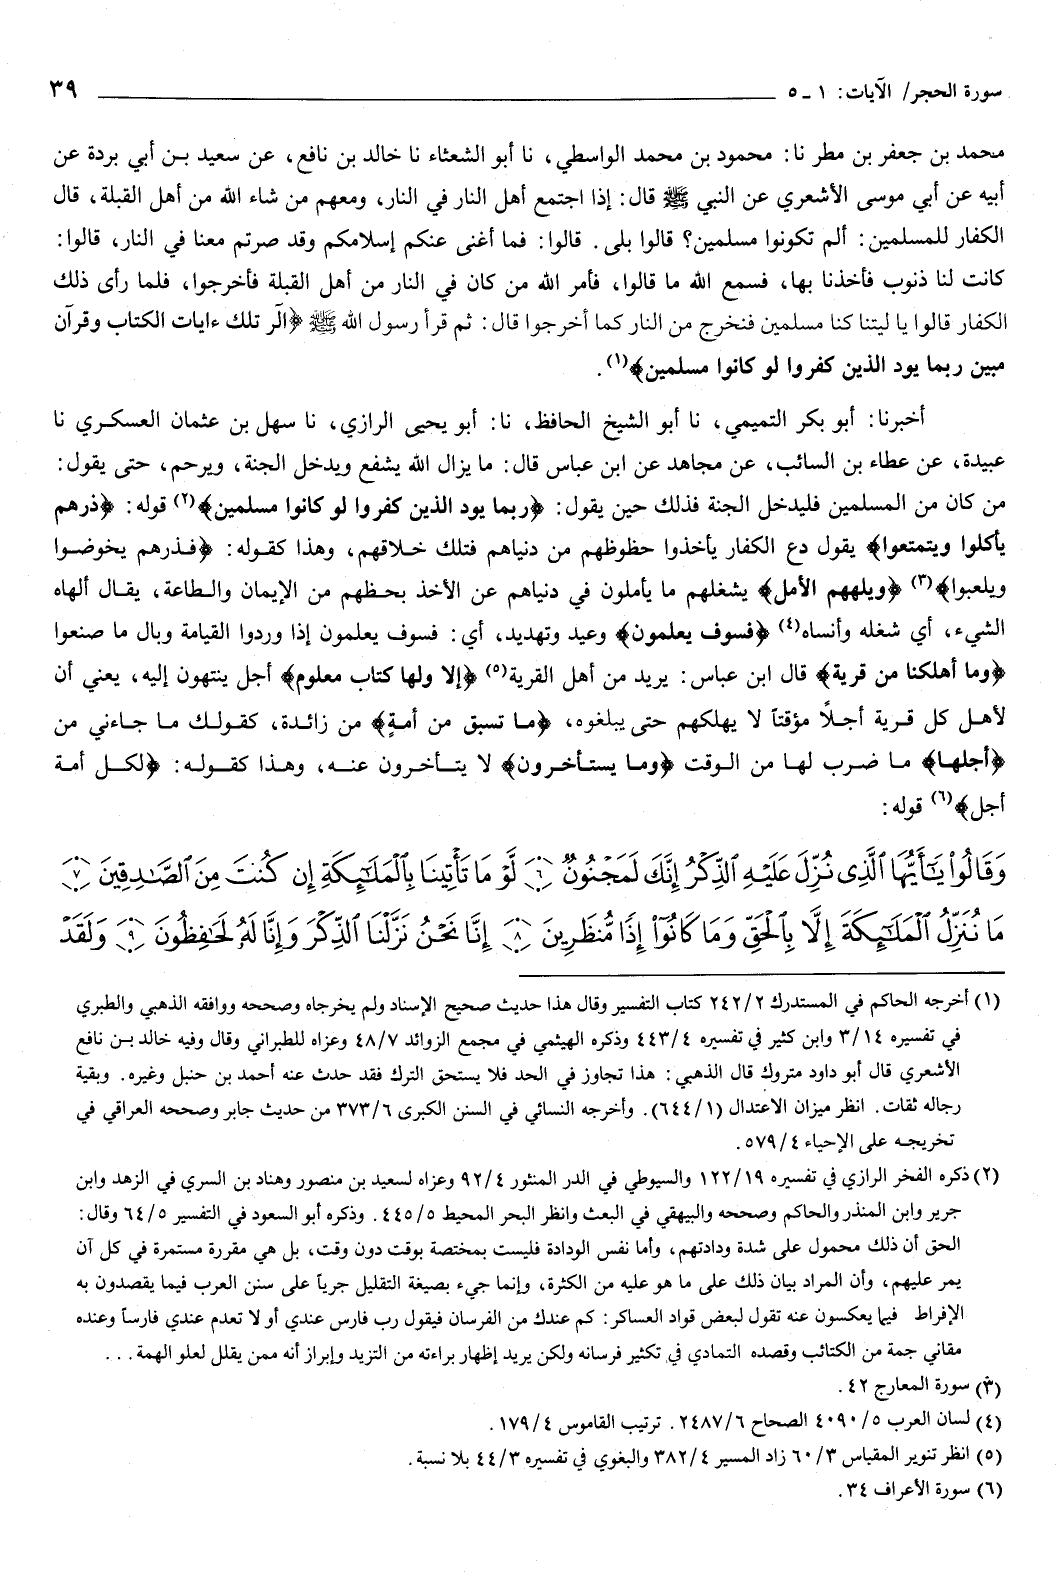 سورة الحجر/ الآيات: ١ ـ ٥ ٣٩
محمد بن جعفر بن مطر نا: محمود بن محمد الواسطي، نا أبو الشعثاء نا خالد بن نافع، عن سعيد بـن أبي بردة عن
أبيه عن أبي موسى الأشعري عن النبي ﷺ قال: إذا اجتمع أهل النار في النار، ومعهم من شاء الله من أهل القبلة، قال
الكفار للمسلمين: ألم تكونوا مسلمين؟ قالوا بلى. قالوا: فما أغنى عنكم إسلامكم وقد صرتم معنا في النار، قالوا:
كانت لنا ذنوب فأخذنا بها، فسمع الله ما قالوا، فأمر الله من كان في النار من أهل القبلة فأخرجوا، فلما رأى ذلك
الكفار قالوا يا ليتنا كنا مسلمين فنخرج من النار كما أخرجوا قال: ثم قرأ رسول الله ﷺ ﴿الٓر تلك ءايات الكتاب وقرآن
مبين ربما يود الذين كفروا لو كانوا مسلمين﴾(١).
أخبرنا: أبو بكر التميمي، نا أبو الشيخ الحافظ، نا: أبو يحيى الرازي، نا سهل بن عثمان العسكري نا
عبيدة، عن عطاء بن السائب، عن مجاهد عن ابن عباس قال: ما يزال الله يشفع ويدخل الجنة، ويرحم، حتى يقول:
من كان من المسلمين فليدخل الجنة فذلك حين يقول: ﴿ربما يود الذين كفروا لو كانوا مسلمين﴾(٢) قوله: ﴿ذرهم
يأكلوا ويتمتعوا﴾ يقول دع الكفار يأخذوا حظوظهم من دنياهم فتلك خلاقهم، وهذا كقوله: ﴿فذرهم يخوضوا
ويلعبوا﴾(٣) ﴿ويلههم الأمل﴾ يشغلهم ما يأملون في دنياهم عن الأخذ بحظهم من الإيمان والطاعة، يقال ألهاه
الشيء، أي شغله وأنساه(٤) ﴿فسوف يعلمون﴾ وعيد وتهديد، أي: فسوف يعلمون إذا وردوا القيامة وبال ما صنعوا
﴿وما أهلكنا من قرية﴾ قال ابن عباس: يريد من أهل القرية(٥) ﴿إلا ولها كتاب معلوم﴾ أجل ينتهون إليه، يعني أن
لأهل كل قرية أجلاً مؤقتاً لا يهلكهم حتى يبلغوه، ﴿ما تسبق من أمةٍ﴾ من زائدة، كقولك ما جاءني من
﴿أجلها﴾ ما ضرب لها من الوقت ﴿وما يستأخرون﴾ لا يتأخرون عنه، وهذا كقوله: ﴿لكل أمة
أجل﴾(٦) قوله:
وَقَالُواْ يَٰٓأَيُّهَا ٱلَّذِى نُزِّلَ عَلَيْهِ ٱلذِّكْرُ إِنَّكَ لَمَجْنُونٌ ٦ لَّوْ مَا تَأْتِينَا بِٱلْمَلَٰٓئِكَةِ إِن كُنتَ مِنَ ٱلصَّٰدِقِينَ ٧
مَا نُنَزِّلُ ٱلْمَلَٰٓئِكَةَ إِلَّا بِٱلْحَقِّ وَمَا كَانُوٓاْ إِذًا مُّنظَرِينَ ٨ إِنَّا نَحْنُ نَزَّلْنَا ٱلذِّكْرَ وَإِنَّا لَهُۥ لَحَٰفِظُونَ ٩ وَلَقَدْ
(١) أخرجه الحاكم في المستدرك ٢٤٢/٢ كتاب التفسير وقال هذا حديث صحيح الإسناد ولم يخرجاه وصححه ووافقه الذهبي والطبري
في تفسيره ٣/١٤ وابن كثير في تفسيره ٤٤٣/٤ وذكره الهيثمي في مجمع الزوائد ٤٨/٧ وعزاه للطبراني وقال وفيه خالد بـن نافع
الأشعري قال أبو داود متروك قال الذهبي: هذا تجاوز في الحد فلا يستحق الترك فقد حدث عنه أحمد بن حنبل وغيره. وبقية
رجاله ثقات. انظر ميزان الاعتدال (٦٤٤/١). وأخرجه النسائي في السنن الكبرى ٣٧٣/٦ من حديث جابر وصححه العراقي في
تخريجه على الإحياء ٥٧٩/٤.
(٢) ذكره الفخر الرازي في تفسيره ١٢٢/١٩ والسيوطي في الدر المنثور ٩٢/٤ وعزاه لسعيد بن منصور وهناد بن السري في الزهد وابن
جرير وابن المنذر والحاكم وصححه والبيهقي في البعث وانظر البحر المحيط ٤٤٥/٥. وذكره أبو السعود في التفسير ٦٤/٥ وقال:
الحق أن ذلك محمول على شدة ودادتهم، وأما نفس الودادة فليست بمختصة بوقت دون وقت، بل هي مقررة مستمرة في كل آن
يمر عليهم، وأن المراد بيان ذلك على ما هو عليه من الكثرة، وإنما جيء بصيغة التقليل جرياً على سنن العرب فيما يقصدون به
الإفراط فيما يعكسون عنه تقول لبعض قواد العساكر: كم عندك من الفرسان فيقول رب فارس عندي أو لا تعدم عندي فارساً وعنده
مقاني جمة من الكتائب وقصده التمادي في تكثير فرسانه ولكن يريد إظهار براءته من التزيد وإبراز أنه ممن يقلل لعلو الهمة . . .
(٣) سورة المعارج ٤٢.
(٤) لسان العرب ٤٠٩٠/٥ الصحاح ٢٤٨٧/٦. ترتيب القاموس ١٧٩/٤.
(٥) انظر تنوير المقباس ٦٠/٣ زاد المسير ٣٨٢/٤ والبغوي في تفسيره ٤٤/٣ بلا نسبة.
(٦) سورة الأعراف ٣٤.